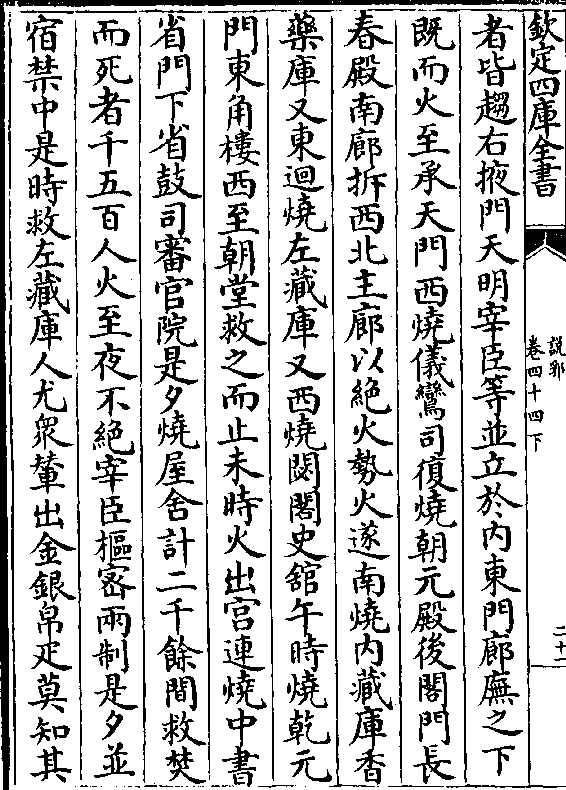 欽定四庫全書
說郛
卷四十四下
二十二
者皆趨右掖門天明宰臣等並立於內東門廊廡之下
既而火至承天門西燒儀鸞司復燒朝元殿後閣門長
春殿南廊拆西北主廊以絕火勢火遂南燒內藏庫香
藥庫又東迴燒左藏庫又西燒閟閣史舘午時燒乾元
門東角樓西至朝堂救之而止未時火出宫連燒中書
省門下省鼓司審官院是夕燒屋舍計二千餘間救焚
而死者千五百人火至夜不絕宰臣樞宻兩制是夕並
宿禁中是時救左藏庫人尤衆輦出金銀帛疋莫知其